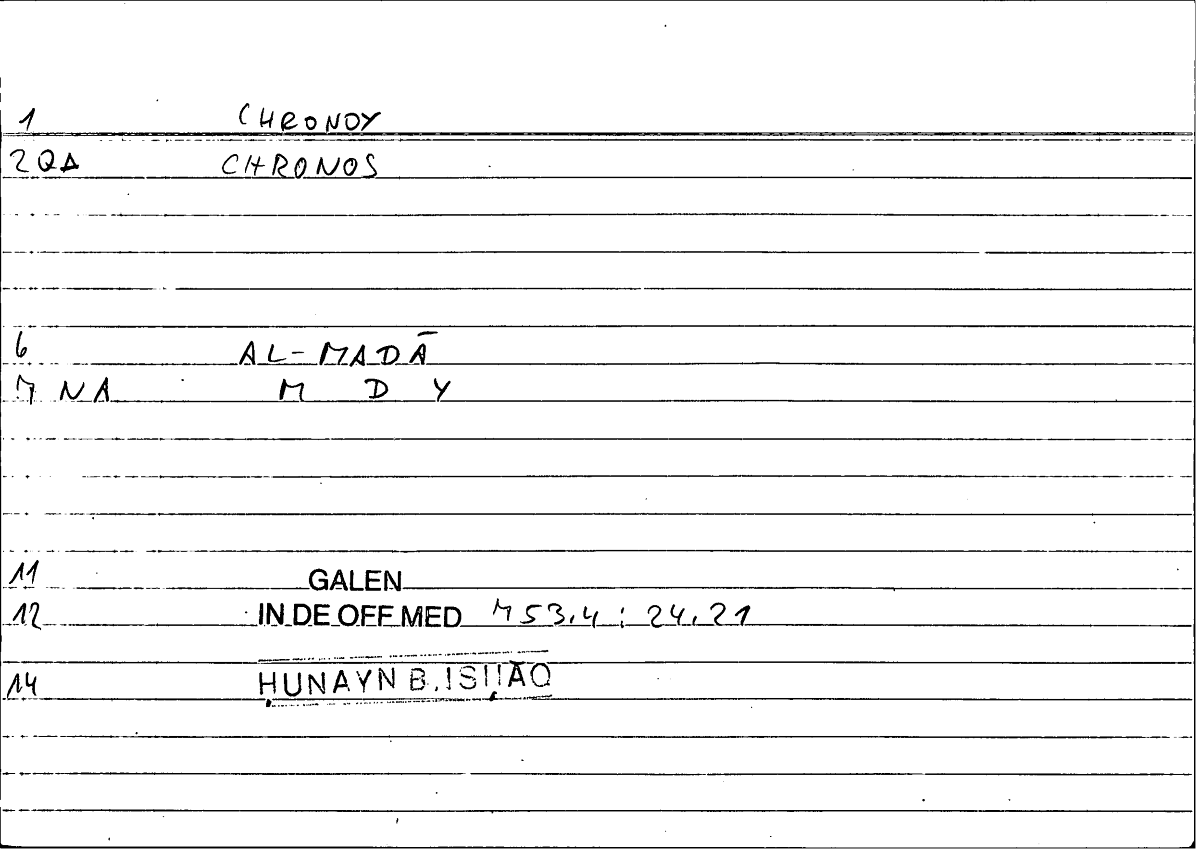 1 CHRONOY
2 QA CHRONOS
6 AL-MADĀ
7 NA M D Y
11 GALEN
12 IN DE OFF MED 753,4 : 24,21
14 ḤUNAYN B. ISḤĀQ